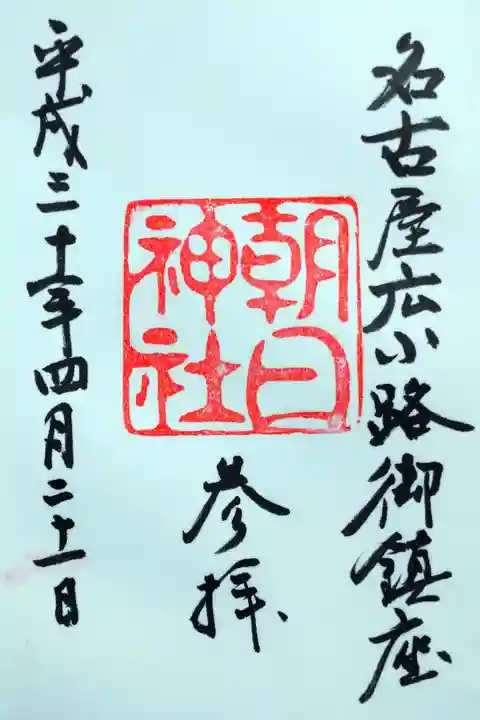 名古屋広小路御鎮座
朝日
神社
参拝
平成三十年四月二十一日